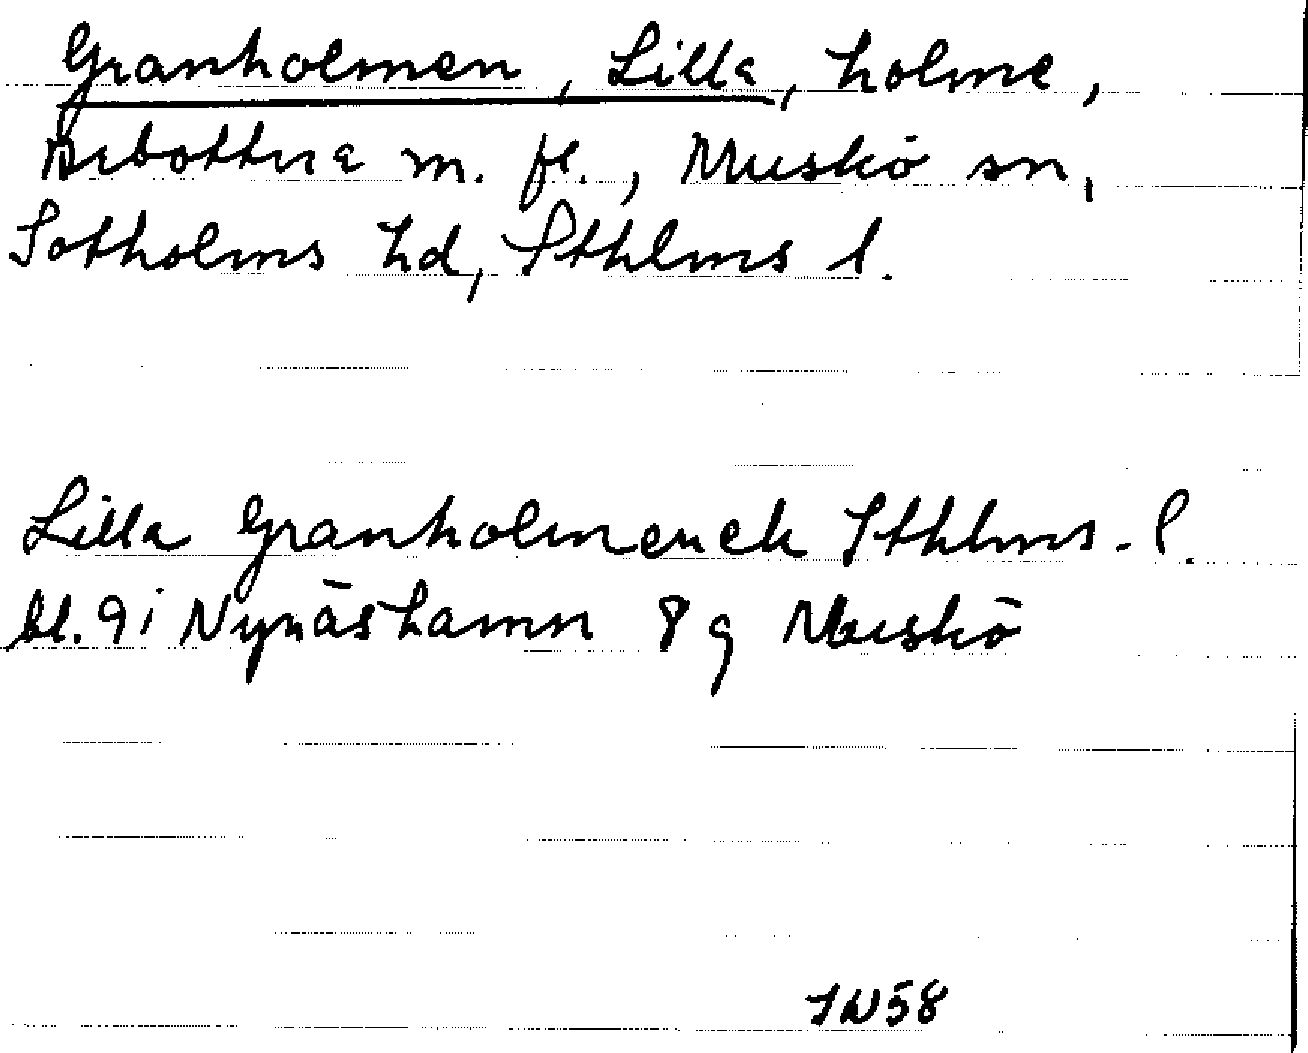 Granholmen, Lilla, holme,
Arbottna m. fl., Muskö sn,
Sotholms hd, Sthlms l.
Lilla Granholmen ek Sthlms-l.
bl. 9i Nynäshamn 8 g Muskö
IN58